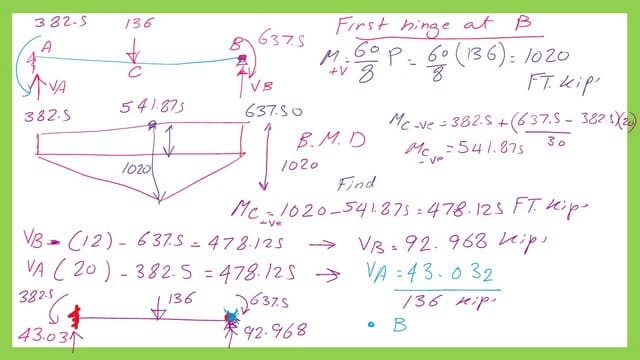 382.5 136 First hinge at B
A B 637.5
C
M+v = 60/8 P = 60/8 (136) = 1020
FT. Kips
VA VB
382.5 541.875 637.50
Mc-ve = 382.5 + (637.5 - 382.5)(20)/30
Mc-ve = 541.875
B.M.D
1020 1020
Find
Mc+ve = 1020 - 541.875 = 478.125 FT. Kips
VB - (12) - 637.5 = 478.125 → VB = 92.968 Kips
VA (20) - 382.5 = 478.125 → VA = 43.032
136 Kips
382.5 136 637.5
43.03 92.968
• B